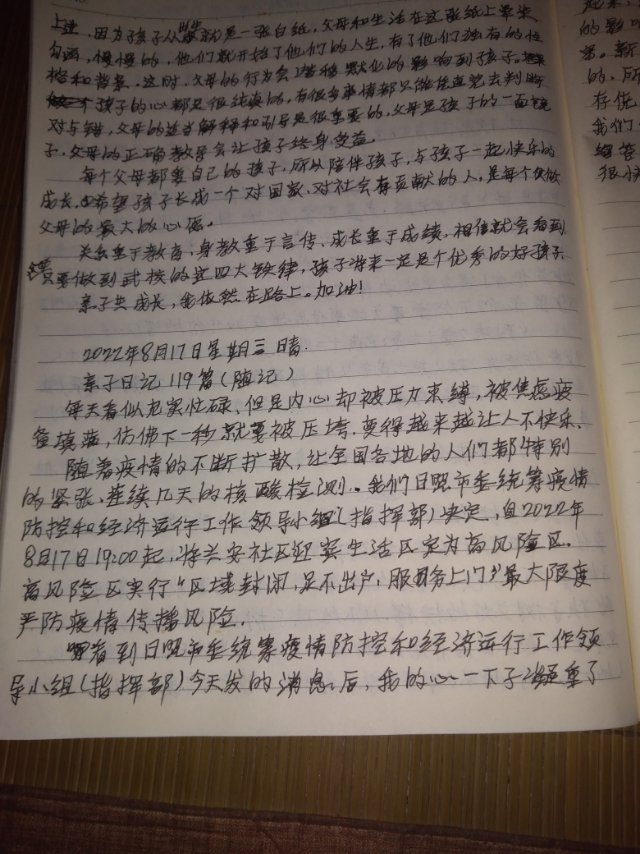 上进，因为孩子从出生就是一张白纸，父母和生活在这张纸上晕染
勾画，慢慢的，他们就开始了他们的人生，有了他们独有的性
格和背景，这时，父母的行为会潜移默化的影响到孩子。
孩子的心都是很纯真的，有很多事情都只能凭直觉去判断
对与错，父母的适当解释和引导是很重要的，父母是孩子的一面镜
子，父母的正确教导会让孩子终身受益。
每个父母都爱自己的孩子，所以陪伴孩子，与孩子一起快乐的
成长，希望孩子长成一个对国家、对社会有贡献的人，是每个做
父母的最大的心愿。
关系重于教育，身教重于言传，成长重于成绩，相信就会看到
只要做到武校的这四大铁律，孩子将来一定是个优秀的好孩子
亲子共成长，我依然在路上。加油！
2022年8月17日星期三 晴.
亲子日记 119篇(随记)
每天看似充实忙碌，但是内心却被压力束缚，被焦虑疲
惫填满，仿佛下一秒就要被压垮.变得越来越让人不快乐.
随着疫情的不断扩散，让全国各地的人们都特别
的紧张，连续几天的核酸检测，我们日喀市委统筹疫情
防控和经济运行工作领导小组(指挥部)决定，自2022年
8月17日19:00起，将兴安社区迎宾生活区定为高风险区.
高风险区实行"区域封闭，足不出户，服务上门"最大限度
严防疫情传播风险.
看到日喀市委统筹疫情防控和经济运行工作领
导小组(指挥部)今天发的消息后，我的心一下子沉重了
起来，
的影响
的，所
存优
我们
很快